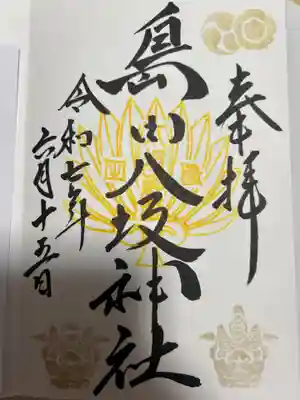 奉拝
島田八坂神社
令和七年
六月十五日